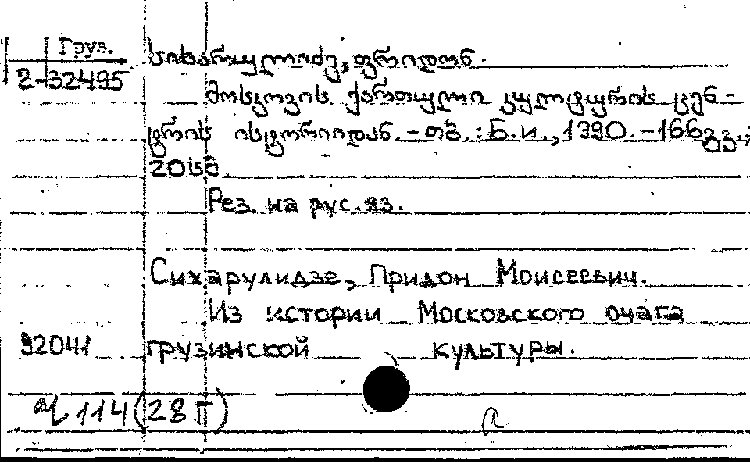 Груз.
2-32495
სიხარულიძე, ფრიდონ.
მოსკოვის ქართული კულტურის ცენ-
ტრის ისტორიიდან. - თბ. : Б.и., 1990. - 166 გვ.;
20 სმ.
Рез. на рус. яз.
Сихарулидзе, Придон Моисеевич.
Из истории Московского очага
92041 грузинской культуры.
114 (28 Г)